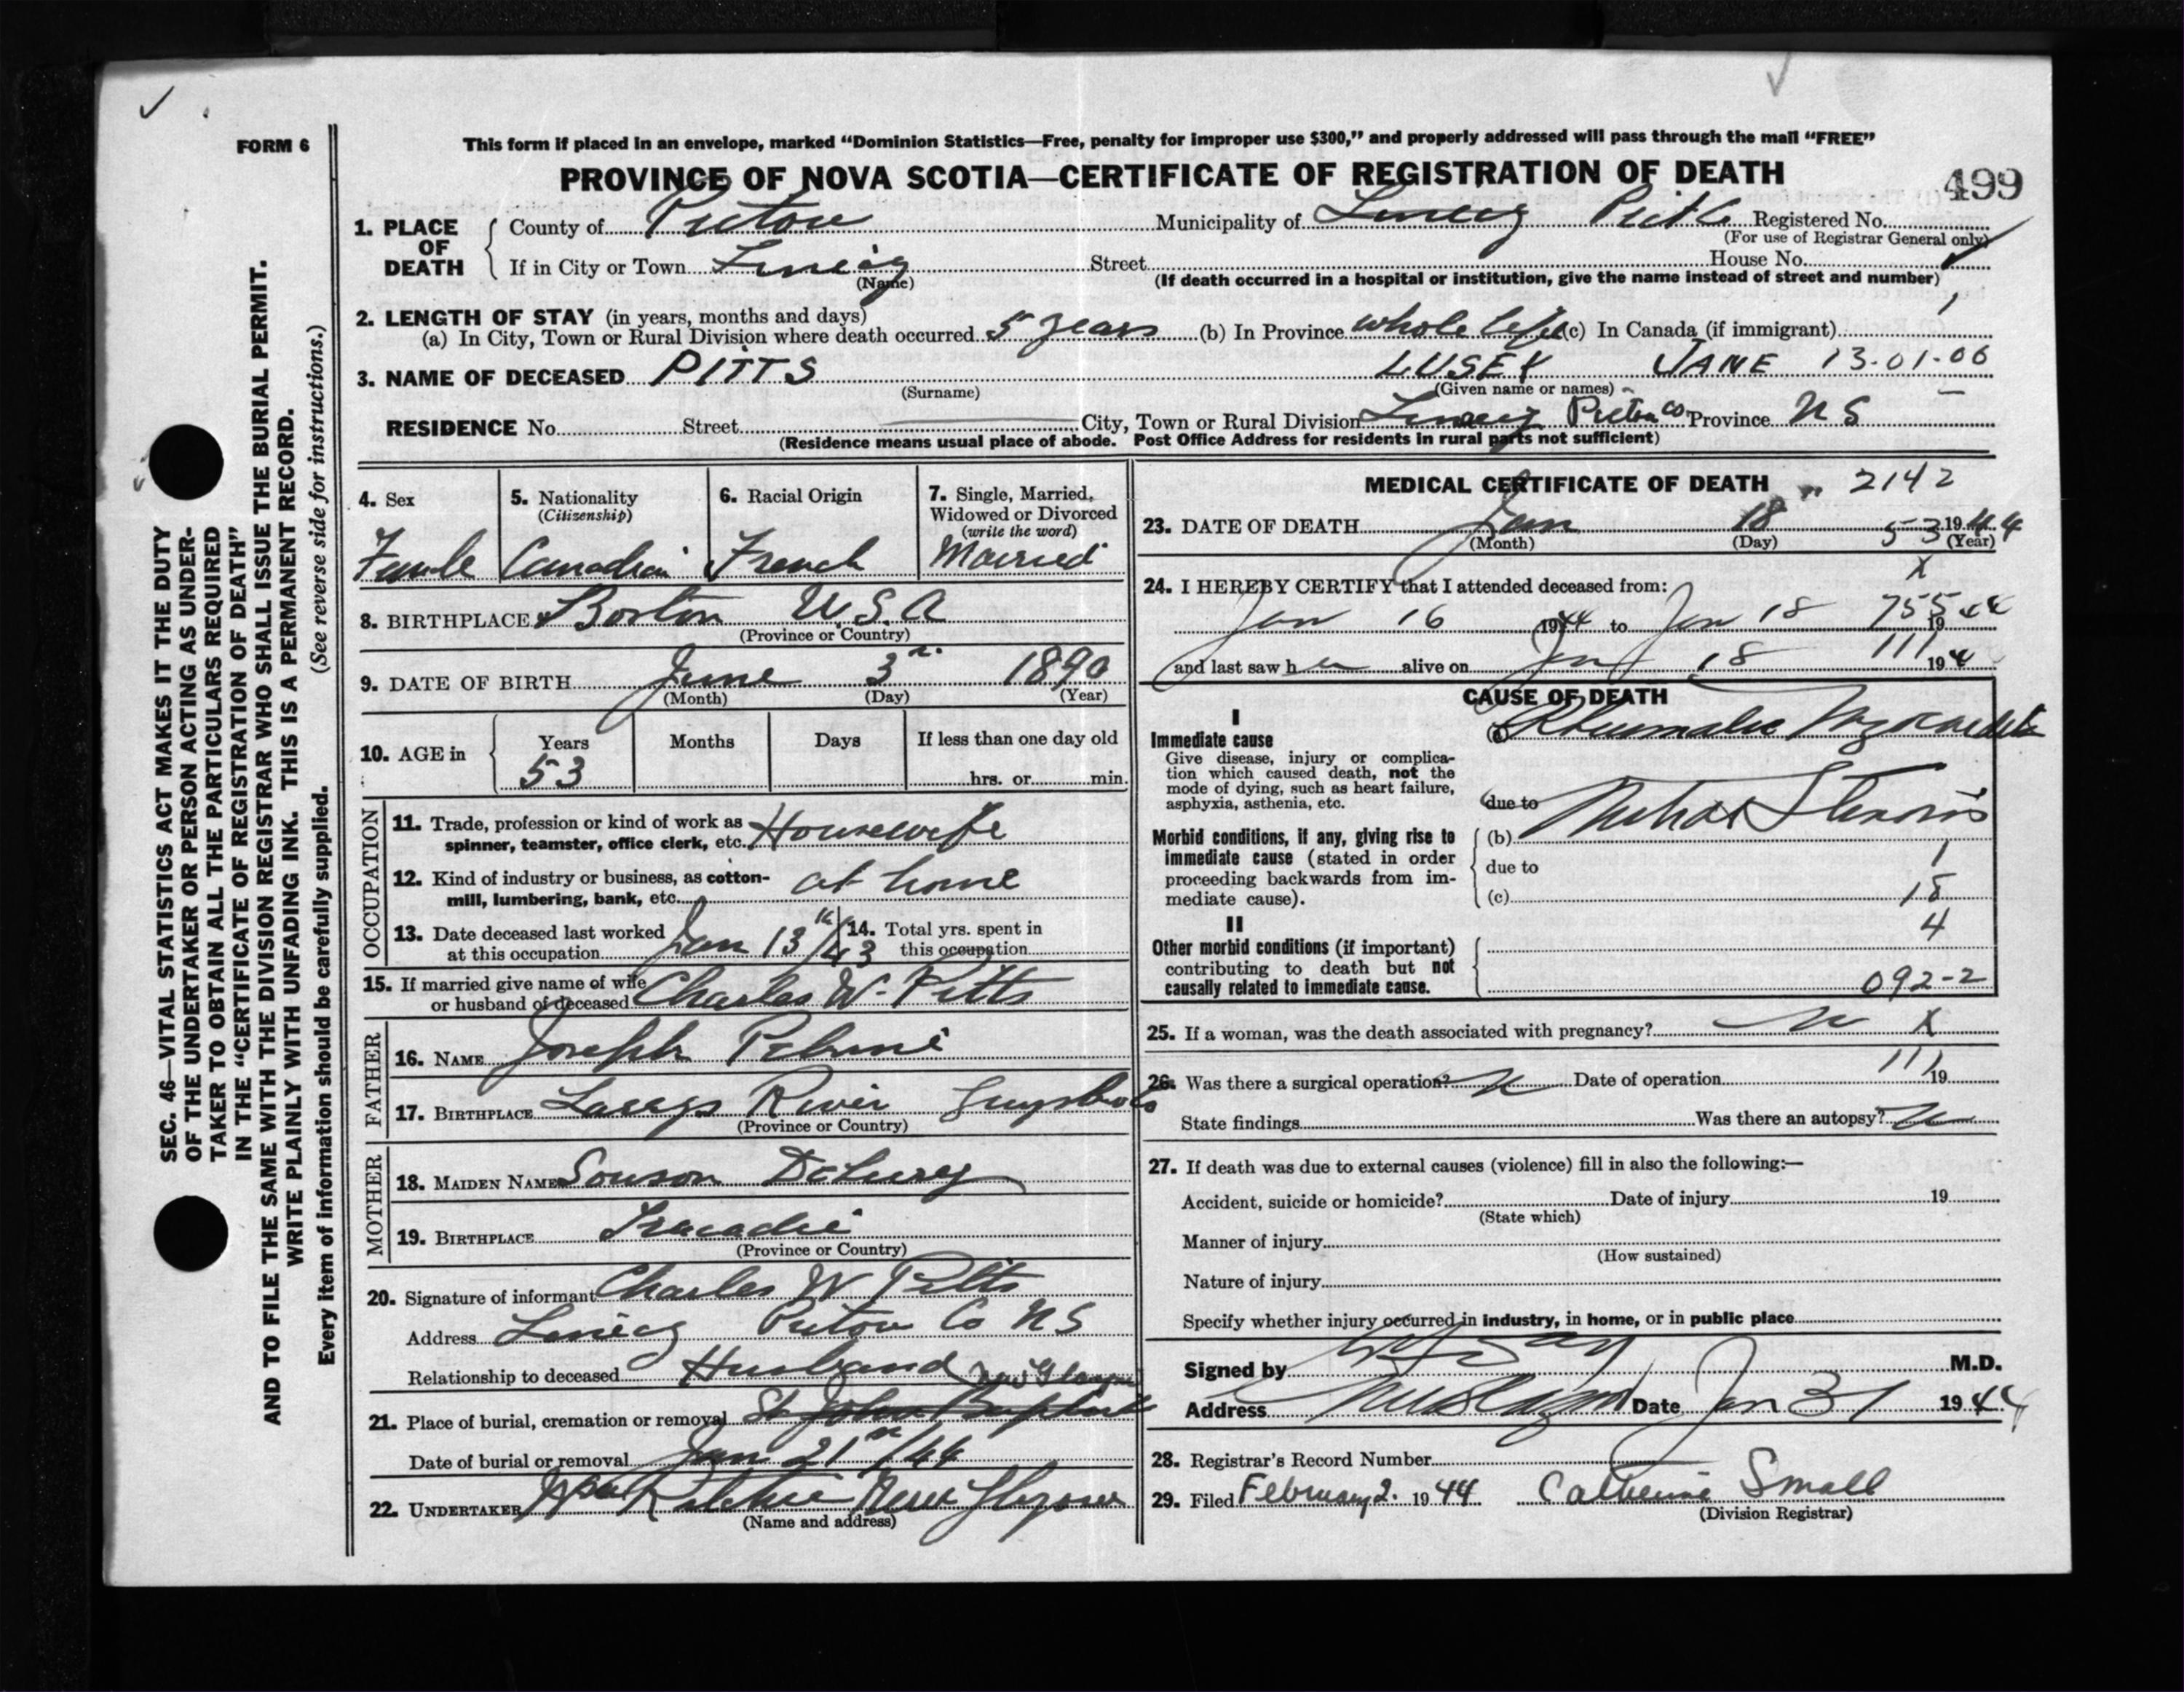 FORM 6
This form if placed in an envelope, marked "Dominion Statistics—Free, penalty for improper use $300," and properly addressed will pass through the mail "FREE"
PROVINCE OF NOVA SCOTIA—CERTIFICATE OF REGISTRATION OF DEATH
499
1. PLACE OF DEATH
County of Pictou Municipality of Registered No.
(For use of Registrar General only)
If in City or Town Street House No.
(Name) (If death occurred in a hospital or institution, give the name instead of street and number)
2. LENGTH OF STAY (in years, months and days)
(a) In City, Town or Rural Division where death occurred 5 years (b) In Province whole life (c) In Canada (if immigrant)
3. NAME OF DECEASED PITTS LUSEY JANE 13-01-06
(Surname) (Given name or names)
RESIDENCE No. Street City, Town or Rural Division Pictou Co Province N S
(Residence means usual place of abode. Post Office Address for residents in rural parts not sufficient)
4. Sex Female
5. Nationality (Citizenship) Canadian
6. Racial Origin French
7. Single, Married, Widowed or Divorced (write the word) Married
8. BIRTHPLACE Boston U.S.A
(Province or Country)
9. DATE OF BIRTH June 3 1890
(Month) (Day) (Year)
10. AGE in Years 53 Months Days If less than one day old
hrs. or min.
OCCUPATION
11. Trade, profession or kind of work as spinner, teamster, office clerk, etc. Housewife
12. Kind of industry or business, as cotton-mill, lumbering, bank, etc. at home
13. Date deceased last worked at this occupation Jan 13th/43
14. Total yrs. spent in this occupation
15. If married give name of wife or husband of deceased Charles W. Pitts
FATHER
16. NAME Joseph
17. BIRTHPLACE River
(Province or Country)
MOTHER
18. MAIDEN NAME
19. BIRTHPLACE Tracadie
(Province or Country)
20. Signature of informant Charles W Pitts
Address Pictou Co N S
Relationship to deceased Husband
New Glasgow
21. Place of burial, cremation or removal St John Baptist
Date of burial or removal Jan 21st/44
22. UNDERTAKER Ritchie New Glasgow
(Name and address)
MEDICAL CERTIFICATE OF DEATH 2142
23. DATE OF DEATH Jan 18 53 1944
(Month) (Day) (Year)
X
24. I HEREBY CERTIFY that I attended deceased from:
Jan 16 1944 to Jan 18 755 1944
and last saw her alive on Jan 18 111 194
CAUSE OF DEATH
I
Immediate cause
Give disease, injury or complication which caused death, not the mode of dying, such as heart failure, asphyxia, asthenia, etc.
(a) Rheumatic Myocarditis
due to
Morbid conditions, if any, giving rise to immediate cause (stated in order proceeding backwards from immediate cause).
(b) Mitral Stenosis
due to 1
(c) 18
II 4
Other morbid conditions (if important) contributing to death but not causally related to immediate cause.
092-2
25. If a woman, was the death associated with pregnancy? no X
111
26. Was there a surgical operation? no Date of operation 19
State findings Was there an autopsy? no
27. If death was due to external causes (violence) fill in also the following:—
Accident, suicide or homicide? Date of injury 19
(State which)
Manner of injury
(How sustained)
Nature of injury
Specify whether injury occurred in industry, in home, or in public place
Signed by M.D.
Address Date Jan 31 1944
28. Registrar's Record Number
29. Filed February 2. 1944 Catherine Small
(Division Registrar)
SEC. 46—VITAL STATISTICS ACT MAKES IT THE DUTY
OF THE UNDERTAKER OR PERSON ACTING AS UNDER-
TAKER TO OBTAIN ALL THE PARTICULARS REQUIRED
IN THE "CERTIFICATE OF REGISTRATION OF DEATH"
AND TO FILE THE SAME WITH THE DIVISION REGISTRAR WHO SHALL ISSUE THE BURIAL PERMIT.
WRITE PLAINLY WITH UNFADING INK. THIS IS A PERMANENT RECORD.
Every item of information should be carefully supplied. (See reverse side for instructions.)